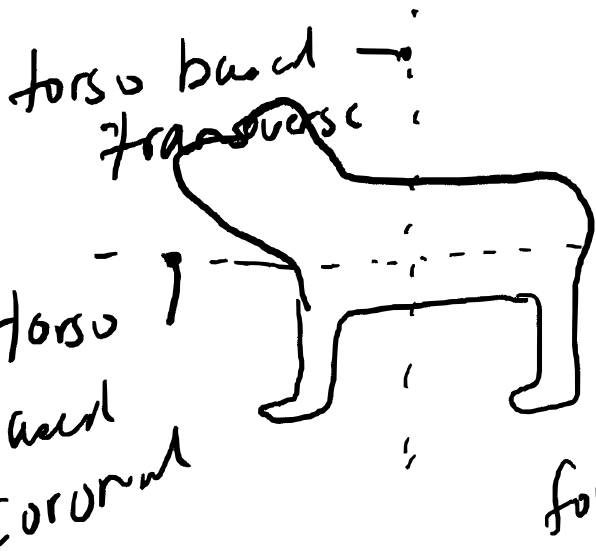 torso based
transverse
torso
ased
coronal
fo